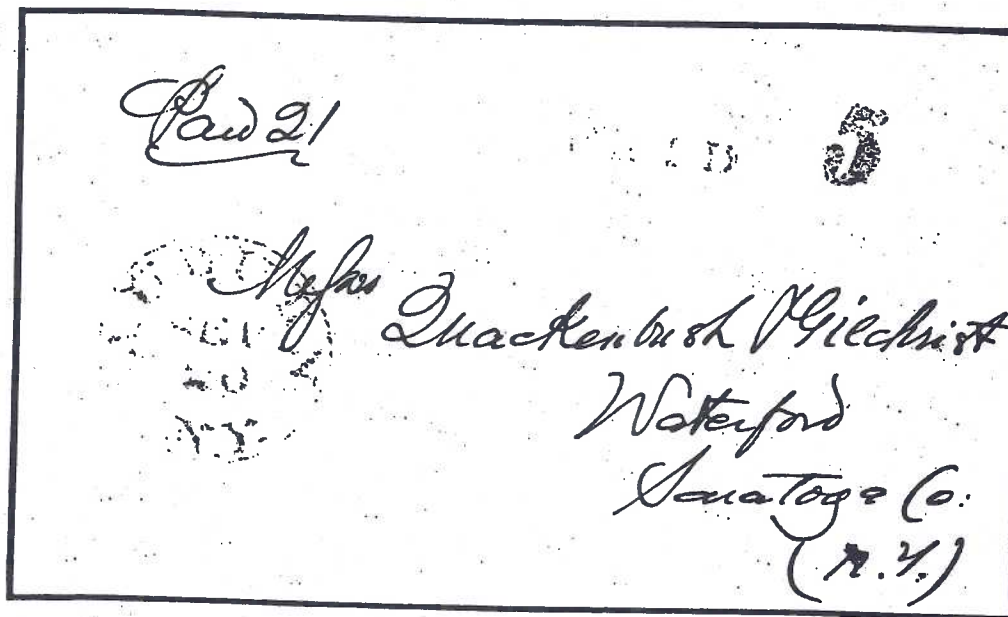 Paid 21
PAID 5
Messrs
Quackenbush & Gilchrist
Waterford
Saratoga Co.
(N.Y.)
SEP
N.Y.